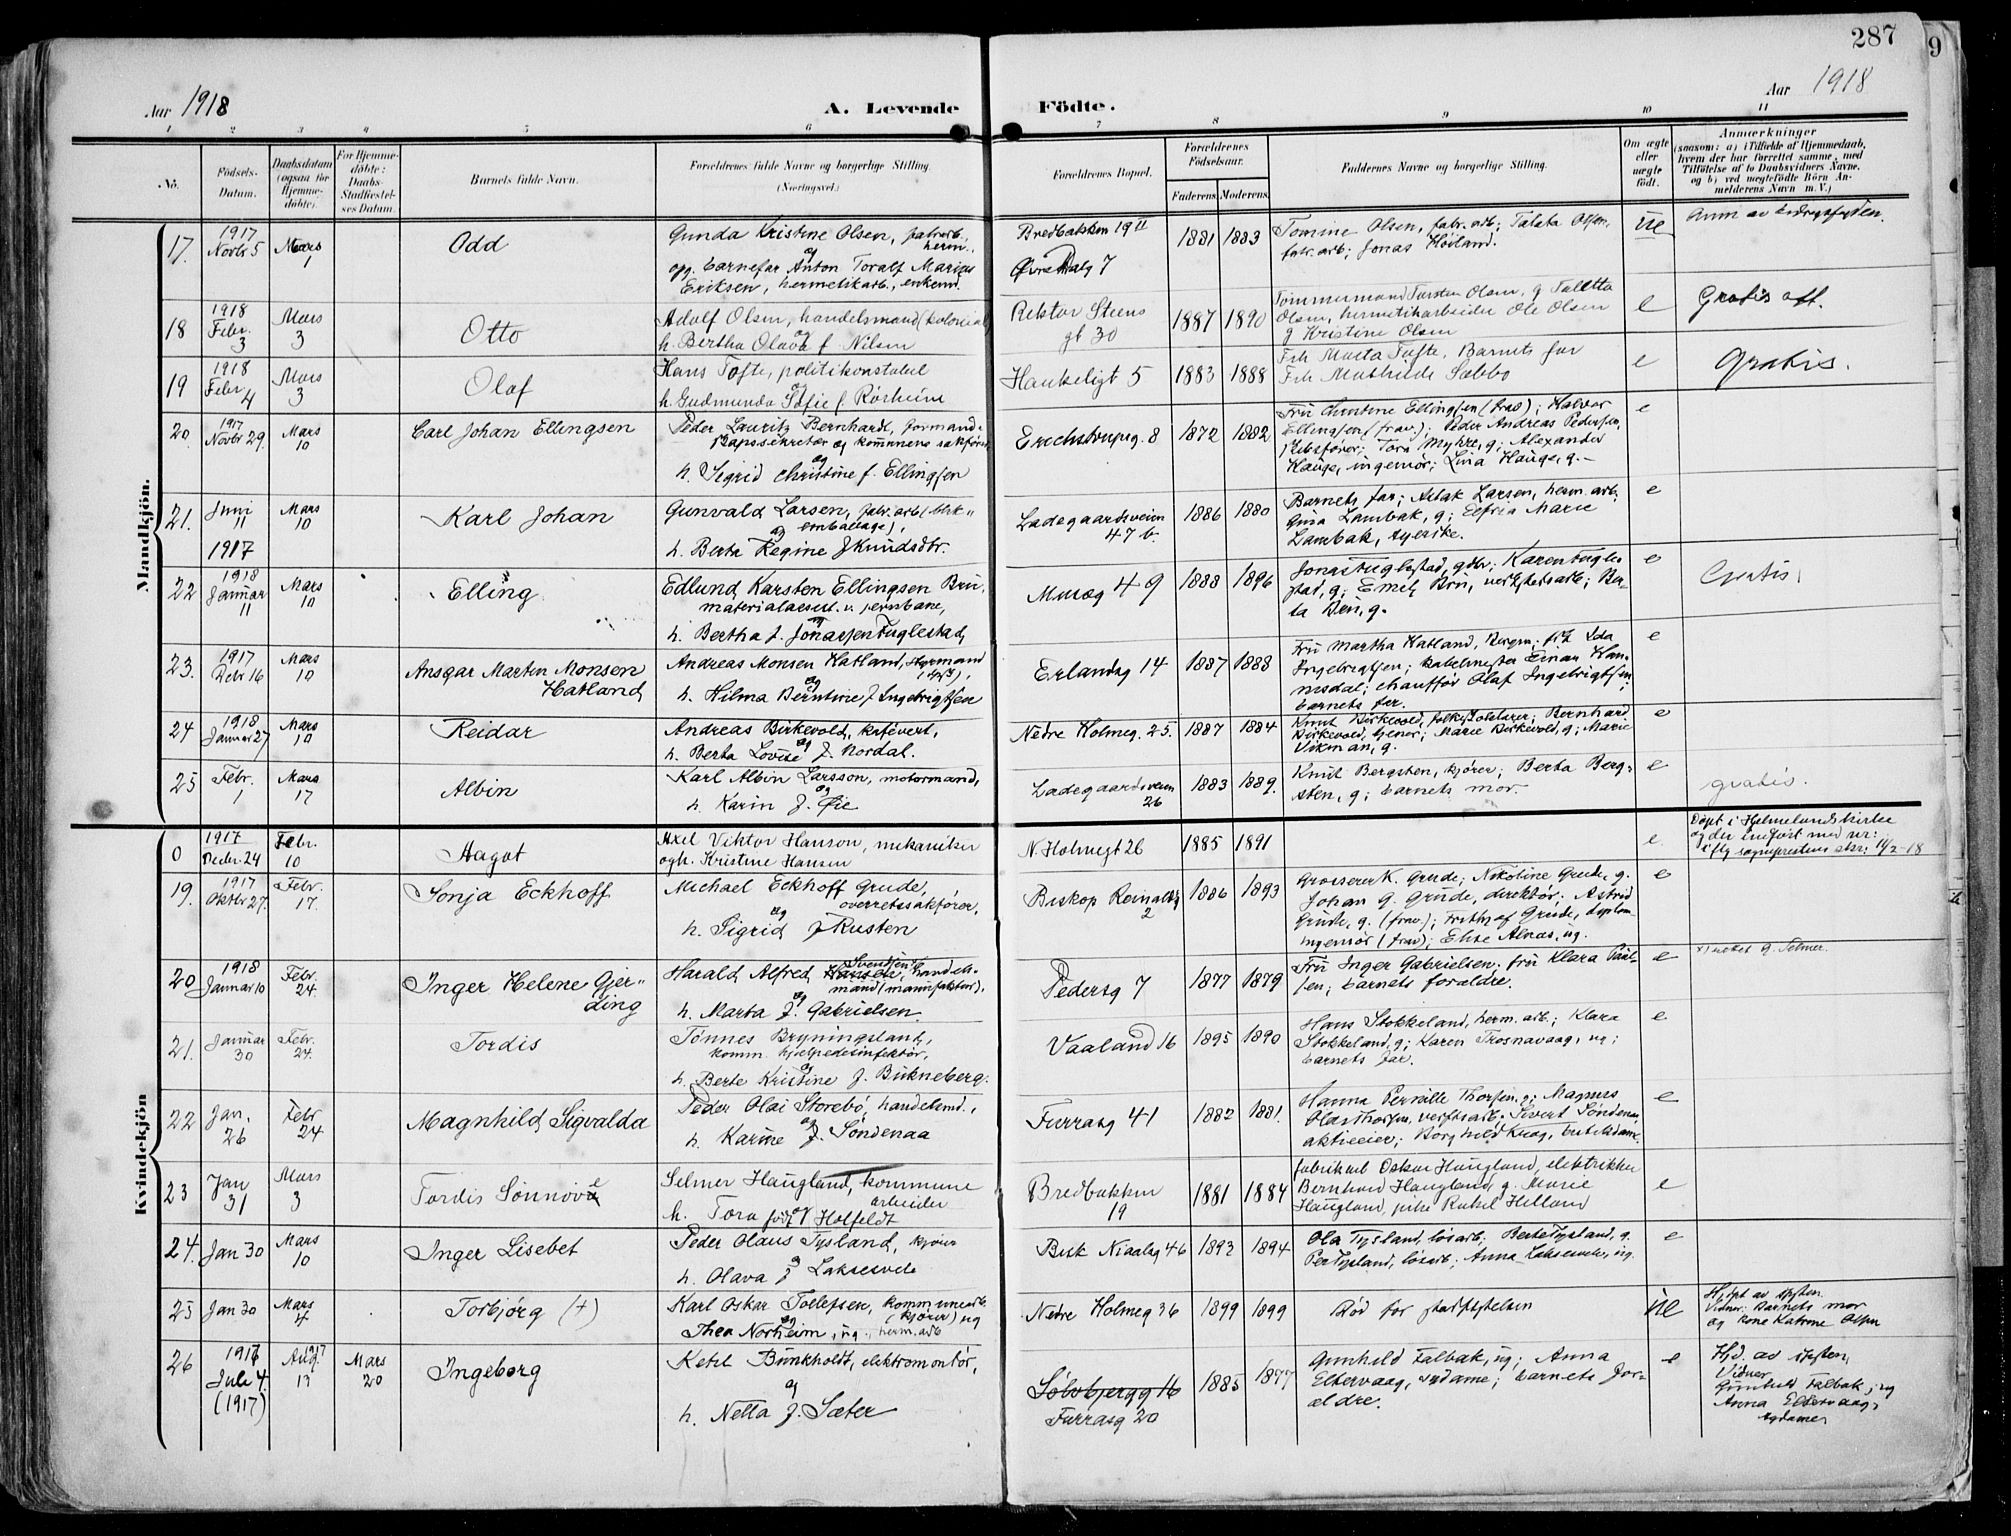 287
9
Aar 1918
A. Levende Födte.
Aar 1918
1 2 3 4 5 6 7 8 9 10 11
No.
Födsels-Datum.
Daabsdatum (ogsaa for Hjemme-döbte).
For Hjemme-döbte: Daabs-Stadfæstel-ses Datum.
Barnets fulde Navn.
Forældrenes fulde Navne og borgerlige Stilling. (Næringsvei.)
Forældrenes Bopæl.
Forældrenes Födselsaar.
Faderens. Moderens.
Faddernes Navne og borgerlige Stilling.
Om ægte eller uægte födt.
Anmærkninger
(saasom: a) i Tilfælde af Hjemmedaab,
hvem der har forrettet samme, med
Tilföielse af to Daabsvidners Navne.
og b) ved uægtefödte Börn An-
melderens Navn m. V.)
Mandkjön.
17. 1917 Novbr 5 Mars 1 Odd
Gunda Kristine Olsen, fabrarb. herm.
og
opg. barnefar Anton Toralf Marius
Eriksen, hermetikarb., enkem.
Bredbakken 19 II
Øvre Dalg 7
1881 1883
Tomine Olsen, fabr. arb; Taleta Olsen,
fabr. arb; Jonas Høiland.
ue
Anm av bidragsfogden.
18 1918 Febr. 3 Mars 3 Otto
Adolf Olsen, handelsmand (kolonial)
og
h. Bertha Olava f. Nilsen
Rektor Steens
gt 30
1887 1890
Tømmermand Torsten Olsen, g Taletta
Olsen, hermetikarbeider Ole Olsen
g Kristine Olsen
e
Gratis att.
19 1918 Febr 4 Mars 3 Olaf
Hans Tofte, politikonstabel
og
h. Gudmunda Sofie f. Rørheim
Haukeligt 5
1883 1888
Frk Marta Tofte, Barnets far
Frk Mathilde Sæbbø
e
Gratis.
20. 1917 Novbr 29. Mars 10 Carl Johan Ellingsen
Peder Lauritz Bernhard, formand-
skapssekretær og kommunens sakfører
og
h. Sigrid Christine f. Ellingsen
Erichstrupsg. 8
1872 1882
Fru Christine Ellingsen (frav.); Halvor
Ellingsen (frav.); Peder Andreas Pedersen,
skibsfører; Tora Myhre, g; Alexander
Hauge, ingeniør; Lina Hauge, g.
e
21. Juni 11 1917 Mars 10 Karl Johan
Gunvald Larsen, fabr. arb (blik-
emballage),
og
h. Berta Regine f Knudsdtr.
Ladegaardsveien
47 b.
1886 1880
Barnets far; Aslak Larsen, herm. arb.
Gina Lambak, g; Elfria Marie
Lambak, syerske.
e
22 1918 Januar 11 Mars 10 Elling
Edlund Karsten Ellingsen Bru,
materialassist. v. jernbane,
og
h. Bertha f. Jonassen Fuglestad,
Musæg 49
1888 1896
Jonas Fuglestad, gdbr; Karen Fugle-
stad, g; Emely Bru, verkstedsarb; Ber-
ta Bru, g.
e
Gratis
23. 1917 Debr 16 Mars 10 Ansgar Martin Monsen
Hatland,
Andreas Monsen Hatland, styrmand
og
h. Hilma Berntine f Ingebrigtsen
Erlandsg 14
1887 1888
Fru Martha Hatland, Bergen; frk Ida
Ingebrigtsen; kabelmester Einar Ham-
mersdal; chauffør Olaf Ingebrigtsen;
barnets far.
e
24 1918 Januar 27 Mars 10 Reidar
Andreas Birkevold, kafévert,
og
h. Berta Lovise f. Nordal.
Nedre Holmeg. 25.
1887 1884
Knut Birkevold, folkeskolelærer; Bernhard
Birkevold, tjener; Marie Birkevold, g; Marie
Vikman, g.
e
25 Febr. 1 Mars 17 Albin
Karl Albin Larsson, motormand,
og
h. Karin f. Øie
Ladegaardsveien
26
1883 1889.
Knut Bergsten, kjører; Berta Berg-
sten, g; barnets mor.
e
gratis.
Kvindekjön
0 1917 Decbr. 24 Febr. 10 Aagot
Axel Viktor Hanson, mekaniker
og h. Kristine Hansen
N. Holmegt 26
1885 1891
e.
Døpt i Hetlands kirke
og der indført med nr:
iflg sogneprestens skr: 14/2-18
19. 1917 Oktbr 27. Febr. 17. Sonja Eckhoff
Michael Eckhoff Grude,
overretssakfører,
og
h. Sigrid f Rusten
Biskop Reinaldsg
2
1886 1893
Grosserer K. Grude; Nikoline Grude, g.
Johan G. Grude, direktør; Astrid
Grude, g. (frav.); Frithjof Grude, diplom-
ingeniør (frav); Else Alnæs, ug.
e
20 1918 Januar 10 Febr. 24. Inger Helene Gjer-
ding
Harald Alfred Hansen, Svendsen handels-
mand (manufaktur),
og
h. Marta f. Gabrielsen.
Pedersg 7
1877 1879
Fru Inger Gabrielsen, fru Klara Paul-
sen; barnets forældre.
e
21. Januar 30 Febr. 24. Tordis
Tønnes Bryningsland,
komm. hjelpedesinfektør,
og
h. Berte Kristine f. Birkneberg.
Vaaland 16
1895 1890
Hans Stokkeland, herm. arb; Klara
Stokkeland, g; Karen Trosnavaag, ug;
barnets far.
e
22 Jan. 26 Febr 24 Magnhild Sigvalda
Peder Olai Storebø, handelsmd.,
og
h. Karine f. Søndenaa
Furrasg 41
1882 1881.
Hanna Pernille Thorsen, g; Magnus
Olai Thorsen, verftsarb; Sivert Søndenaa
aktieeier; Borghild Krag, butikdame.
e
23 Jan 31 Mars 3 Tordis Sønnøve
Selmer Haugland, kommune
arbeider
og
h. Tora født Holfeldt
Bredbakken
19
1881 1884
fabrikarb Oskar Haugland, elektriker
Bernhard Haugland, g. Marie
Haugland, pike Rakel Helland
e
24. Jan 30 Mars 10 Inger Lisebet
Peder Olaus Tysland, kjører
og
h. Olava f Laksesvele
Bisk Nialsg 46
1893 1894
Ola Tysland, løsarb; Berte Tysland, g.
Per Tysland, løsarb; Anna Laksesvele, ug.
e
25 Jan 30 Mars 4 Torbjørg (+)
Karl Oskar Tollefsen, kommunearb.
(kjører) ug
og
Thea Norheim, ug., herm. arb
Nedre Holmeg 36
1899 1899
Død før stadfæstelsen
ue
Hjdpt av jordm.
Vidner: Barnets mor
og kone Katrine Olsen
26 1917 Juli 4. (1917) Aug. 1917 13 Mars 20 Ingeborg
Ketil Bunkholdt, elektromontør,
og
h. Netta f. Sæter
Sølvbjergg 16
Furrasg 20
1885 1877
Gunhild Falbak, ug; Anna
Eltervaag, sydame; barnets for-
ældre.
e
Hjd. av
Vidner
Gunhild Falbak, ug
Anna Eltervaag,
sydame,